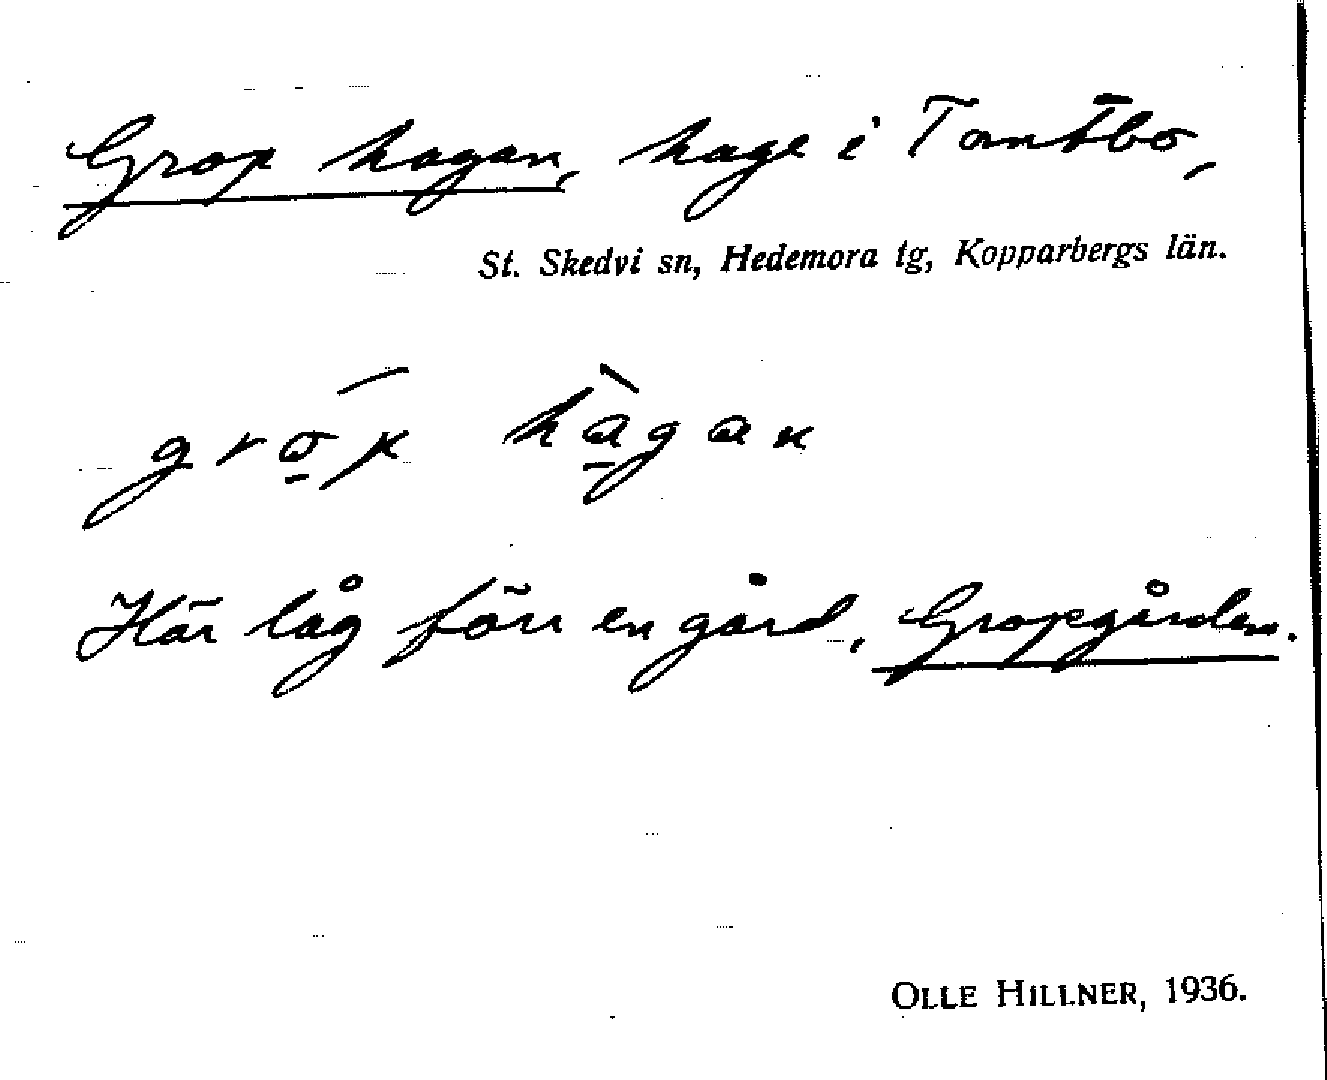 Grop hagan, hage i Tomtbo,
St. Skedvi sn, Hedemora tg, Kopparbergs län.
hàgan
Här låg förr en gård, Gropgården.
OLLE HILLNER, 1936.